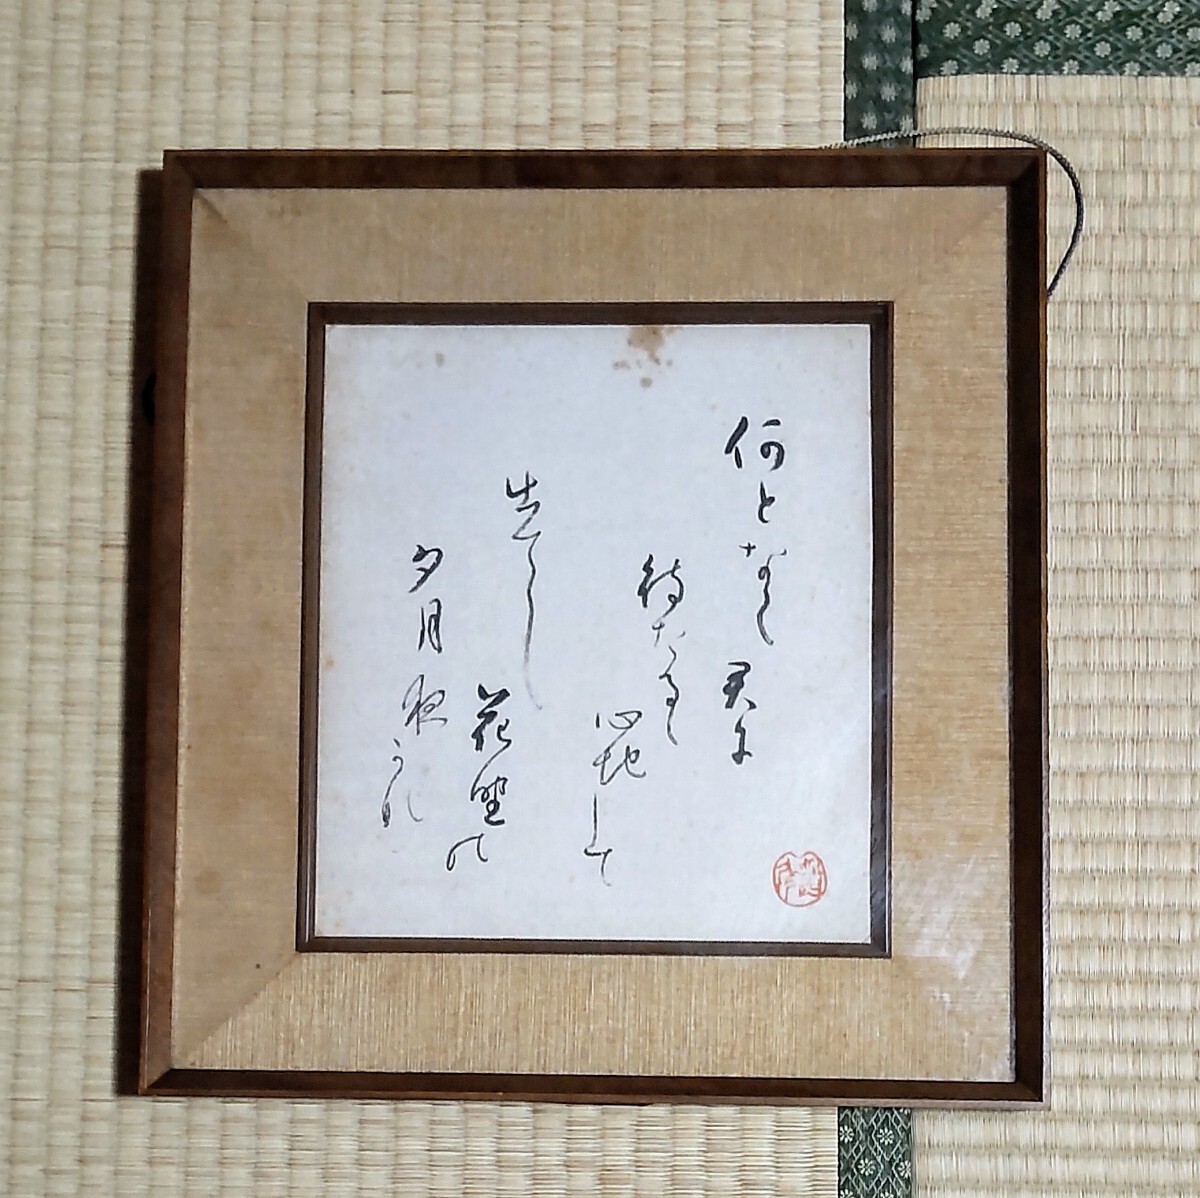 何となく君に
待たるゝ
心地して
出でし
花野の
夕月夜かな